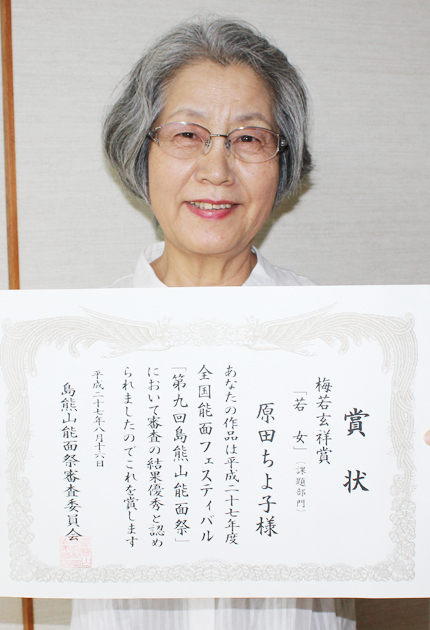 賞状
梅若玄祥賞
「若女」(課題部門)
原田ちよ子様
あなたの作品は平成二十七年度
全国能面フェスティバル
「第九回島熊山能面祭」
において審査の結果優秀と認め
られましたのでこれを賞します
平成二十七年八月十六日
島熊山能面祭審査委員会